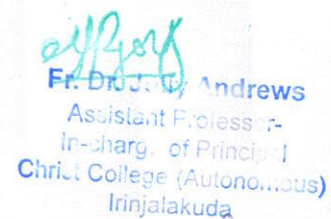 Fr. Dr. Jolly Andrews
Assistant Professor-
In-charge of Principal
Christ College (Autonomous)
Irinjalakuda